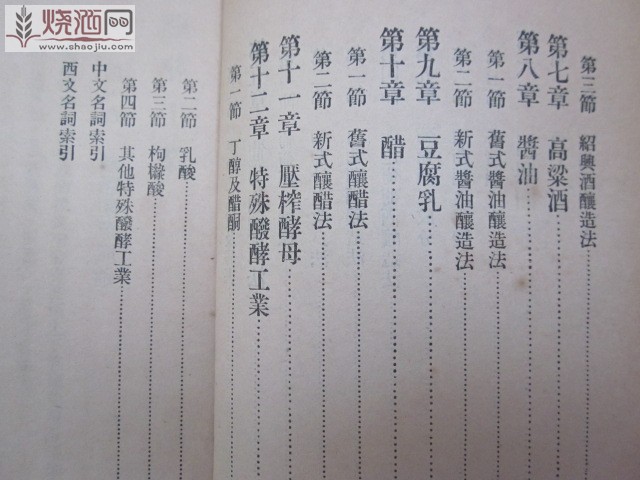 烧酒网
www.shaojiu.com
第三節 紹興酒釀造法
第七章 高粱酒
第八章 醬油
第一節 舊式醬油釀造法
第二節 新式醬油釀造法
第九章 豆腐乳
第十章 醋
第一節 舊式釀醋法
第二節 新式釀醋法
第十一章 壓榨酵母
第十二章 特殊醱酵工業
第一節 丁醇及醋酮
第二節 乳酸
第三節 枸櫞酸
第四節 其他特殊醱酵工業
中文名詞索引
西文名詞索引